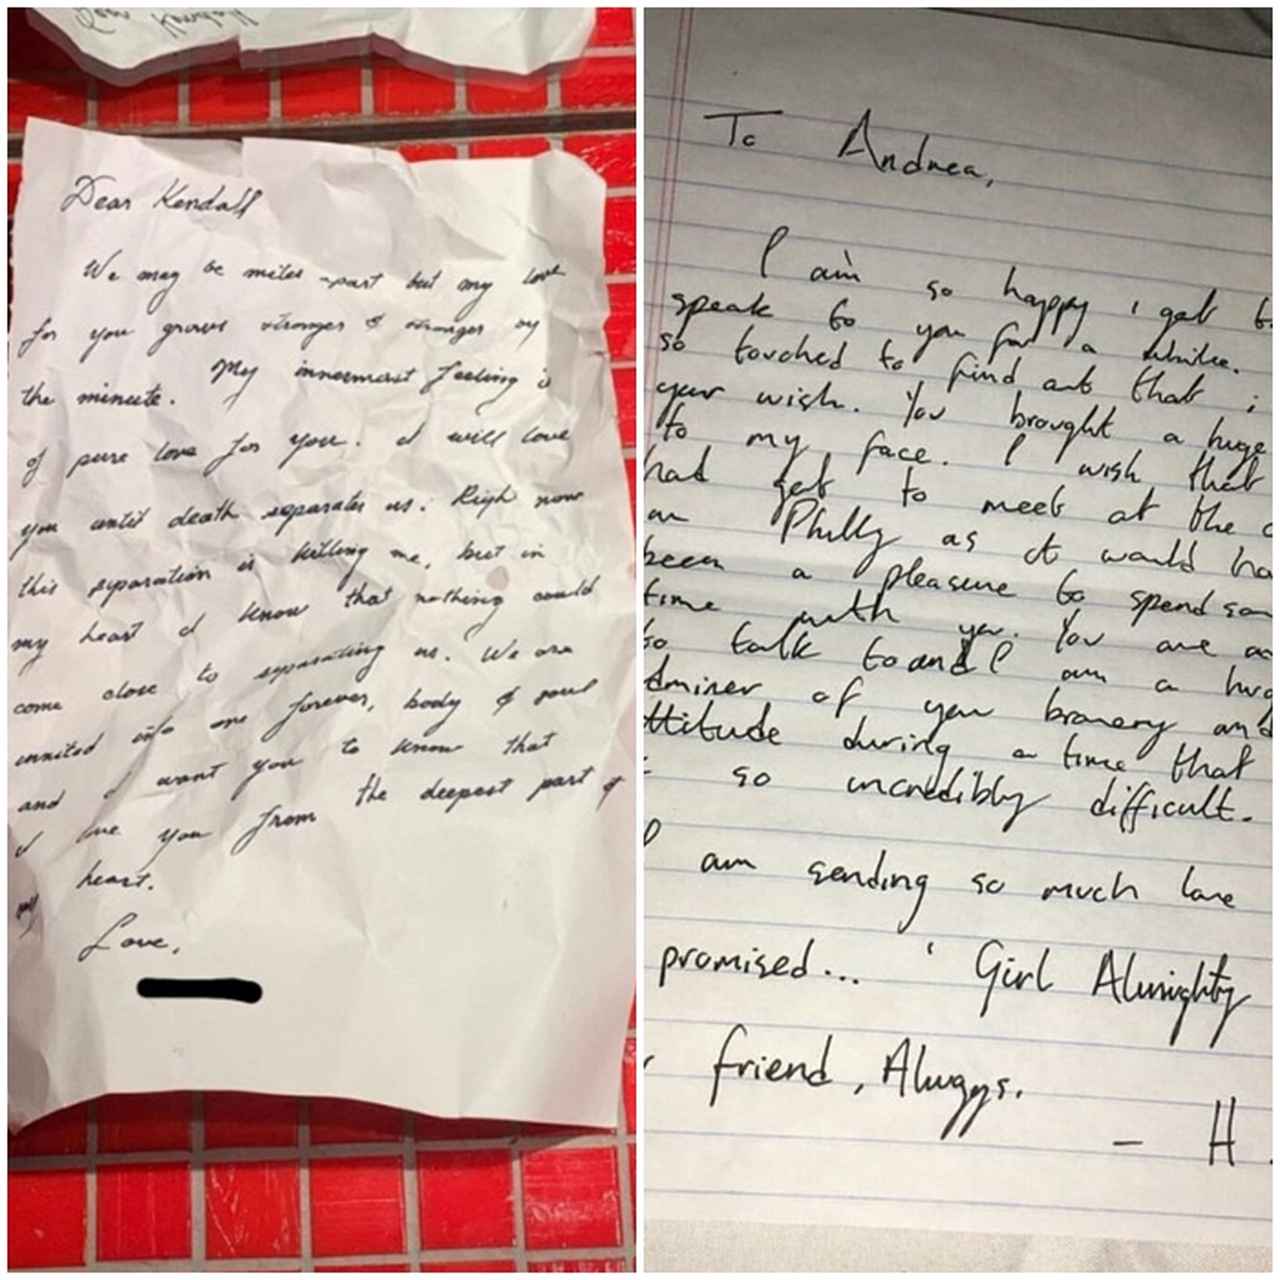 Dear Kendall
We may be miles apart but my love
for you grows stronger & stronger by
the minute. My innermost feeling is
of pure love for you. I will love
you until death separates us. Righ now
this separation is killing me, but in
my heart I know that nothing could
come close to separating us. We are
unnited into one forever, body & soul
and I want you to know that
I love you from the deepest part of
my heart.
Love,
To Andrea,
I am so happy i got to
speak to you for a while.
so touched to find out that i
your wish. You brought a huge
to my face. I wish that
had get to meet at the
in Philly as it would ha
been a pleasure to spend som
time with you. You are
to talk to and I am a hug
dmirer of your bravery and
ttitude during a time that
so incredibly difficult.
I am sending so much love
promised... ' Girl Almighty
friend, Always.
- H.